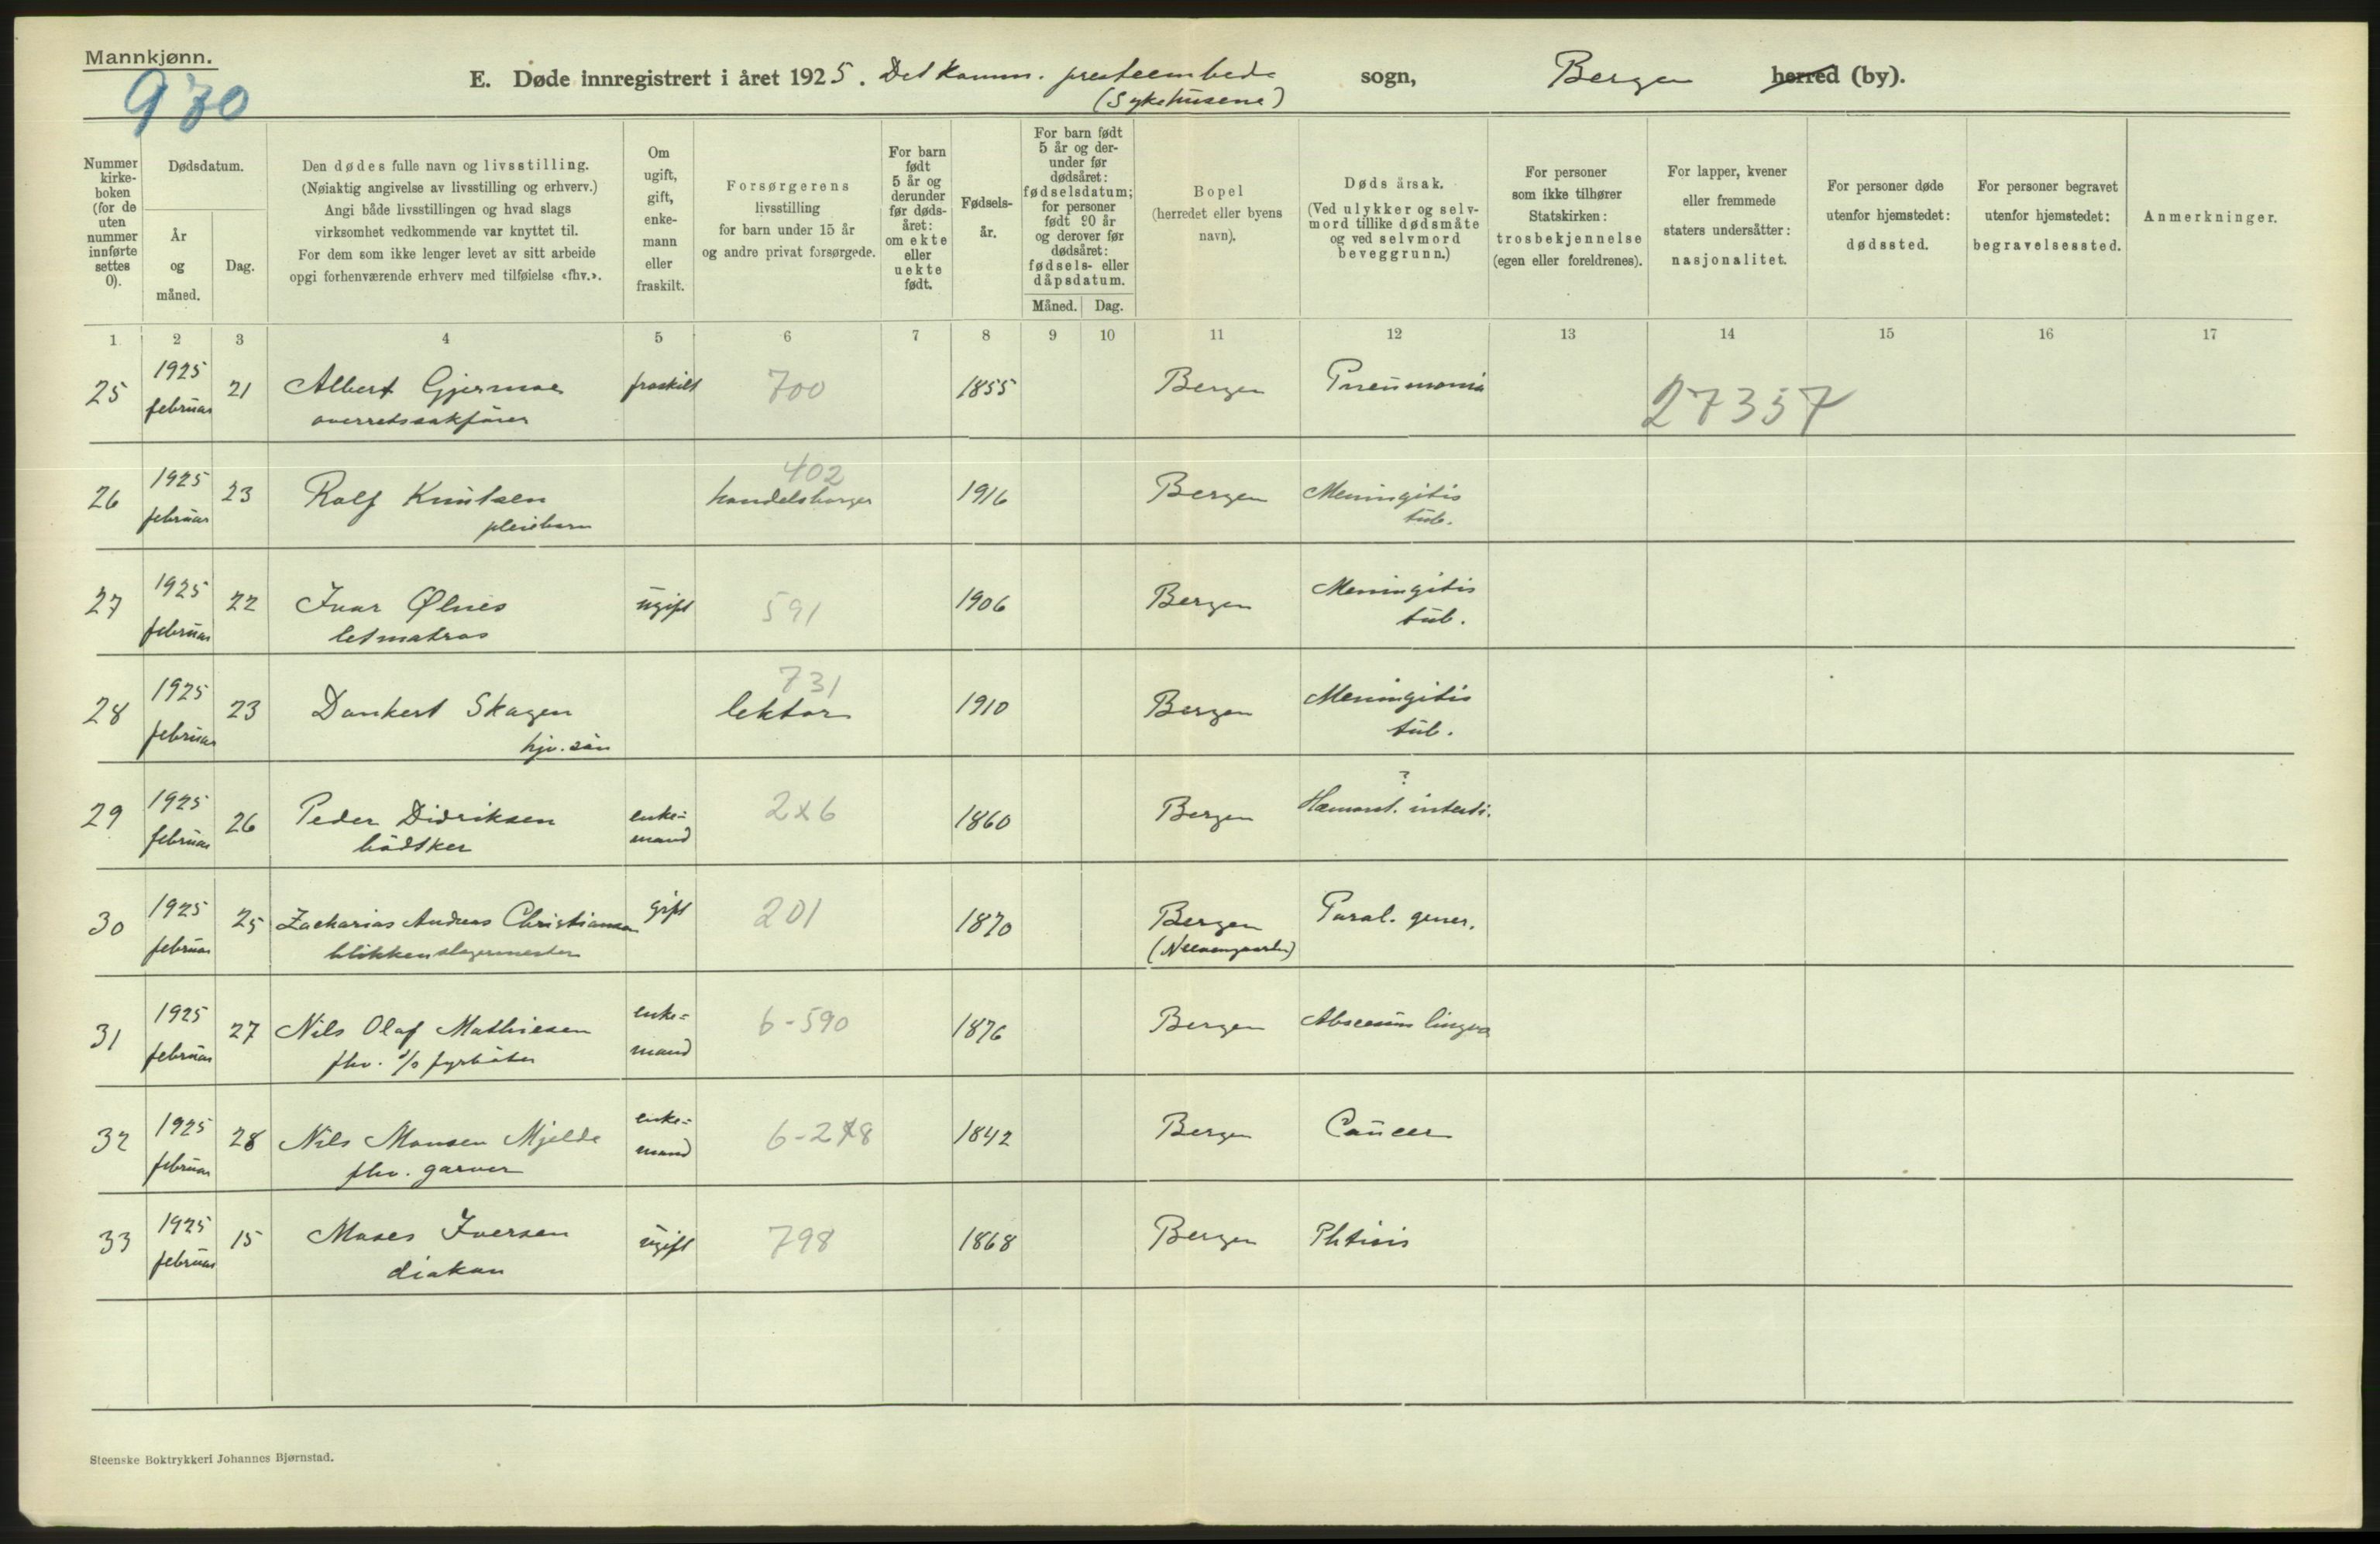 Mannkjønn.
970
E. Døde innregistrert i året 1925. Det Komm. presteembede sogn, Bergen herred (by).
(Sykehusene)
Nummer kirke-boken (for de uten nummer innførte settes 0).
Dødsdatum.
År og måned.
Dag.
Den dødes fulle navn og livsstilling.
(Nøiaktig angivelse av livsstilling og erhverv.)
Angi både livsstillingen og hvad slags
virksomhet vedkommende var knyttet til.
For dem som ikke lenger levet av sitt arbeide
opgi forhenværende erhverv med tilføielse «fhv.».
Om ugift, gift, enke-mann eller fraskilt.
Forsørgerens
livsstilling
for barn under 15 år
og andre privat forsørgede.
For barn født 5 år og derunder før døds-året: om ekte eller uekte født.
Fødsels-år.
For barn født 5 år og der-under før dødsåret: fødselsdatum; for personer født 90 år og derover før dødsåret: fødsels- eller dåpsdatum.
Måned. Dag.
Bopel
(herredet eller byens
navn).
Døds årsak.
(Ved ulykker og selv-
mord tillike dødsmåte
og ved selvmord
beveggrunn.)
For personer
som ikke tilhører
Statskirken:
trosbekjennelse
(egen eller foreldrenes).
For lapper, kvener
eller fremmede
staters undersåtter:
nasjonalitet.
For personer døde
utenfor hjemstedet:
dødssted.
For personer begravet
utenfor hjemstedet:
begravelsessted.
Anmerkninger.
1 2 3 4 5 6 7 8 9 10 11 12 13 14 15 16 17
25 1925 februar 21 Albert Gjermoe fraskilt 700 1855 Bergen Pneumonia 27357
overretssakfører
26 1925 februar 23 Rolf Knutsen 402 handelsborger 1916 Bergen Meningitis tub.
pleiebarn
27 1925 februar 22 Ivar Ølnes ugift 591 1906 Bergen Meningitis tub.
letmatros
28 1925 februar 23 Dankert Skagen 731 lektor 1910 Bergen Meningitis tub.
hjv. søn
29 1925 februar 26 Peder Didriksen enke=mand 2x6 1860 Bergen ? intesti.
bødtker
30 1925 februar 25 Zacharias Andreas Christiansen gift 201 1870 Bergen Paral. gener.
blikkenslagermester (Neevengaarden)
31 1925 februar 27 Nils Olaf Mathiesen enke=mand 6-590 1876 Bergen Abscessus lingva
fhv. d/o fyrbøter
32 1925 februar 28 Nils Monsen Mjelde enke=mand 6-278 1842 Bergen Cancer
fhv. garver
33 1925 februar 15 Moses Iversen ugift 798 1868 Bergen Phtisis
diakon
Steenske Boktrykkeri Johannes Bjørnstad.